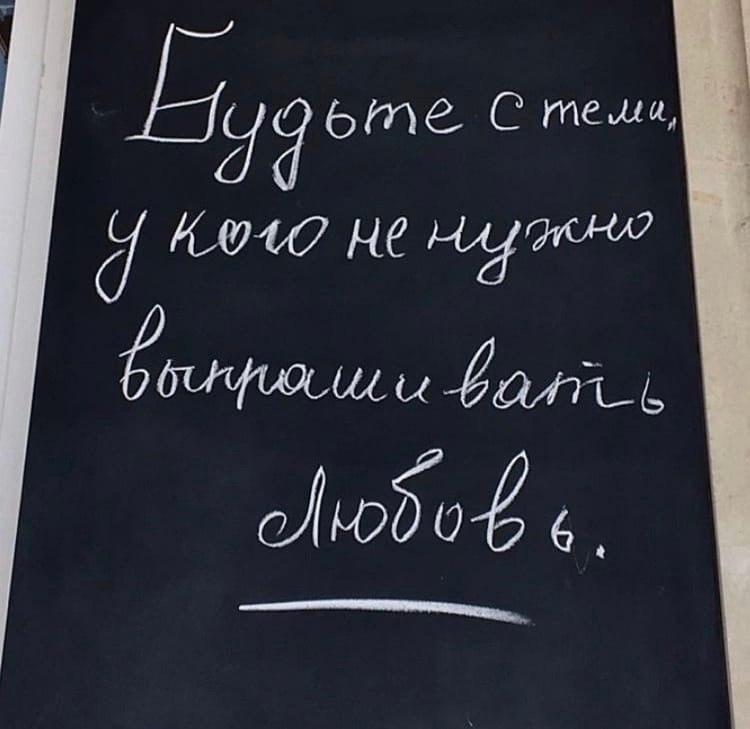 Будьте с теми,
у кого не нужно
выпрашивать
любовь.